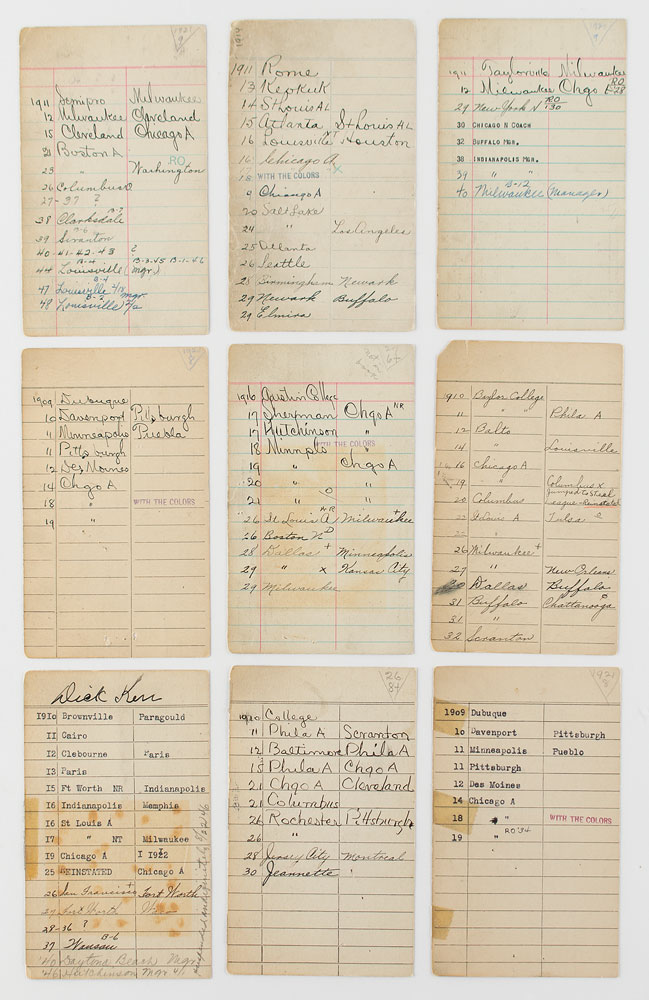 1921
9
1911 Semipro Milwaukee
12 Milwaukee Cleveland
15 Cleveland Chicago A
21 Boston A
RO
23 " " Washington
26 Columbus
27-37 ?
B-?
38 Clarksdale
B-6
39 Scranton
40-41-42-43 ?
B-4
44 Louisville (Mgr.) B-3-45 B-1-46
B-4
47 Louisville Mgr
B-2
48 Louisville
1914
1911 Rome
13 Keokuk
14 St Louis AL
15 Atlanta St Louis AL
16 Louisville Houston
16 Chicago A
18 WITH THE COLORS
9 Chicago A
20 Salt Lake
24 " Los Angeles
25 Atlanta
26 Seattle
28 Birmingham Newark
29 Newark Buffalo
29 Elmira
1921
9
1911 Taylorville Milwaukee
12 Milwaukee Chgo RO
29 New York N RO
'30
30 CHICAGO N COACH
32 BUFFALO MGR.
38 INDIANAPOLIS MGR.
39 " "
B-12
40 Milwaukee (Manager)
1909 Dubuque
10 Davenport Pittsburgh
11 Minneapolis Puebla
11 Pittsburgh
12 Des Moines
14 Chgo A
18 " WITH THE COLORS
19 "
1916 Austin College
17 Sherman Chgo A NR
17 Hutchinson "
WITH THE COLORS
18 Minnpls "
19 " Chgo A
20 " "
21 " "
26 St Louis A Milwaukee
26 Boston N
28 Dallas + Minneapolis
29 " x Kansas City
29 Milwaukee
1910 Baylor College
11 " " Phila A
12 Balto
14 " Louisville
16 Chicago A
19 " Columbus x
Jumped to Steel
20 Columbus League Reinstated
23 St Louis A Tulsa
26 Milwaukee +
27 " New Orleans
30 Dallas Buffalo
31 Buffalo Chattanooga
31 "
32 Scranton
Dick Kerr
1910 Brownville Paragould
11 Cairo
12 Clebourne Paris
13 Paris
15 Ft Worth NR Indianapolis
16 Indianapolis Memphis
16 St Louis A
17 " NT Milwaukee
19 Chicago A I 1922
25 REINSTATED Chicago A
26 San Francisco + Fort Worth
27 Fort Worth Waco
28-36 ?
B-6
37 Wausau
'40 Daytona Beach Mgr
'46 Hutchinson Mgr
26
8+
1910 College
11 Phila A Scranton
12 Baltimore Phila A
15 Phila A Chgo A
21 Chgo A Cleveland
21 Columbus
26 Rochester Pittsburgh
26 "
28 Jersey City Montreal
30 Jeannette
1921
8
1909 Dubuque
10 Davenport Pittsburgh
11 Minneapolis Pueblo
11 Pittsburgh
12 Des Moines
14 Chicago A
18 " WITH THE COLORS
19 " RO'34